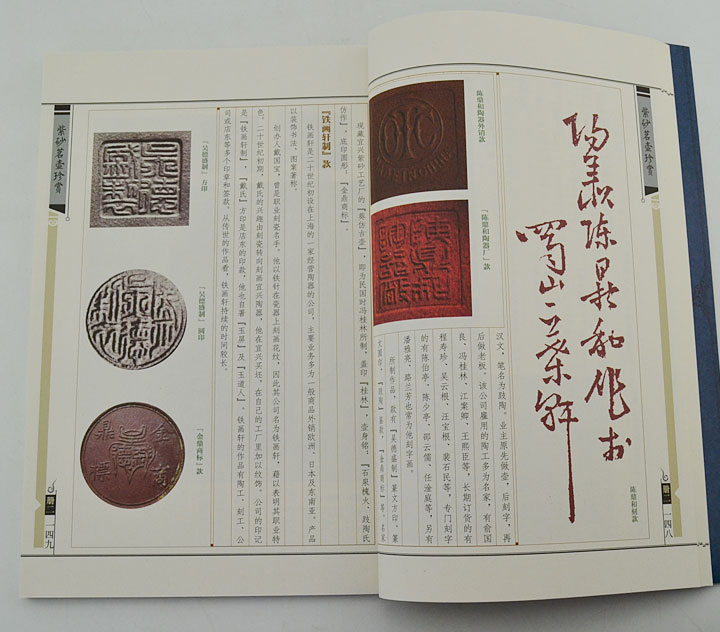 紫砂茗壶珍赏
册二
一四八
陈鼎和作于
蜀山
陈鼎和刻款
陈鼎和陶器外销款
『陈鼎和陶器厂』款
汉文，笔名为跂陶。业主原先做壶，后刻字，再
后做老板。该公司雇用的陶工多为名家，有俞国
良、冯桂林、江案卿、王熙臣等，长期订货的有
程寿珍、吴云根、汪宝根、裴石民等，专门刻字
的有陈伯亭、陈少亭、邵云儒、任淦庭等，另有
潘稚亮、路兰芳也常为他刻字画。
所制作品，款有『吴德盛制』篆文方印、篆
文圆印，『跂陶』篆款，『金鼎商标』等。名家
仿作』，底印圆形：『金鼎商标』。
现藏宜兴紫砂工艺厂的『蒋仿古壶』，即为民国时冯桂林所制，盖印『桂林』，壶身铭：『石泉槐火，跂陶氏
『铁画轩制』款
铁画轩是二十世纪初设在上海的一家经营陶器的公司，主要业务多为一般商品外销欧洲、日本及东南亚。产品
以装饰书法、图案著称。
创办人戴国宝，曾是职业刻瓷名手。他以铁针在瓷器上刻画花纹，因此其公司名为铁画轩，藉以表明其职业特
色。二十世纪初期，戴氏的兴趣由刻瓷转向刻画宜兴陶器，他在宜兴买坯，在自己的工厂里加以纹饰。公司的印记
是『铁画轩制』，『戴氏』方印是店东的印款，他也自署『玉屏』及『玉道人』。铁画轩的作品有陶工、刻工、公
司或店东等多个印章和签款。从传世的作品看，铁画轩持续的时间较长。
『吴德盛制』方印
『吴德盛制』圆印
『金鼎商标』款
吴德盛制
金鼎商标
紫砂茗壶珍赏
册二
一四九